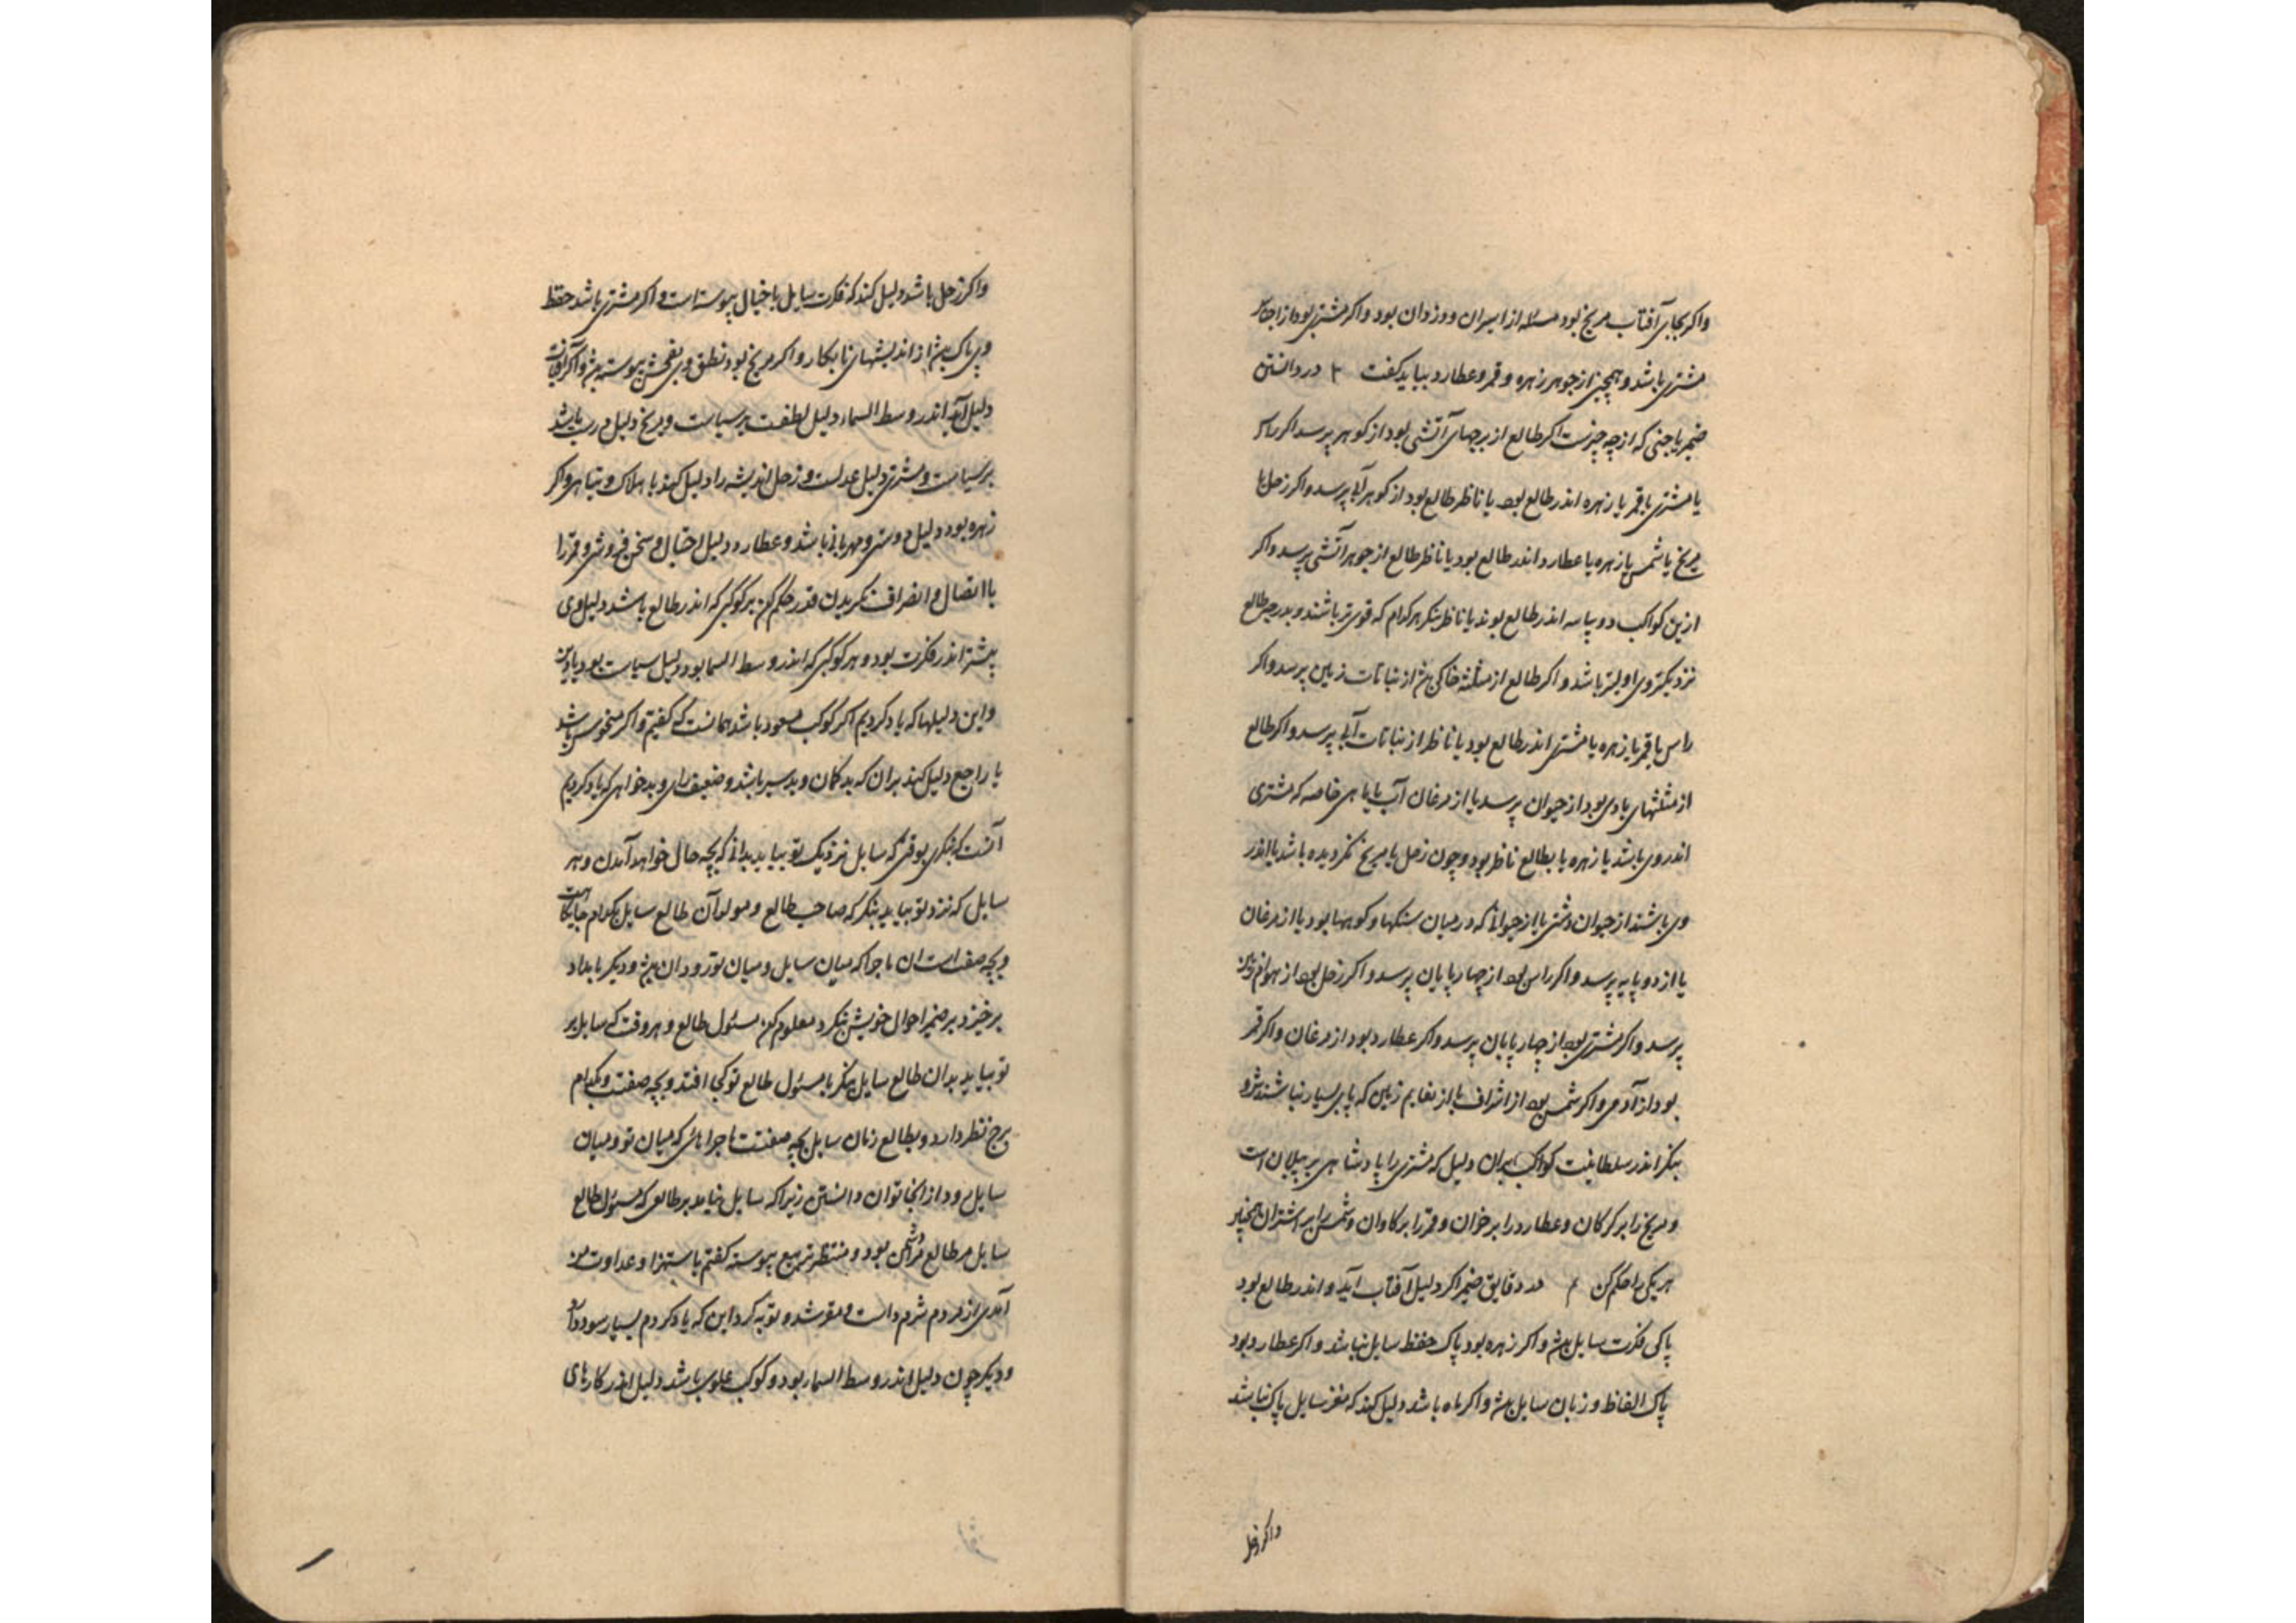 واکر بجای آفتاب مریخ بود مسئله از اسیران و وزدان بود واکر مشتری بود از اجناس
مشتری باشد و همچنین از جوهر زهره و قمر و عطارد بباید کفت ۲ در دانستن
ضمیر یا جنی که از چه چیزست اکر طالع از برجهای آتشی بود از کوهر پرسد اکر راس
یا مشتری یا قمر یا زهره اندر طالع بود یا ناظر طالع بود از کوهر آبی پرسد واکر زحل یا
مریخ یا شمس یا زهره یا عطارد اندر طالع بود یا ناظر طالع از جوهر آتشی پرسد واکر
ازین کواکب دو یا سه اندر طالع بوند یا ناظر بنکر هر کدام که قوی تر باشند و بدرجه طالع
نزدیکتر وی اولیتر باشد واکر طالع از مثلثه خاکی بود از نباتات زمین پرسد واکر
راس یا قمر یا زهره یا مشتری اندر طالع بود یا ناظر از نباتات آبی پرسد واکر طالع
از مثلثهای بادی بود از حیوان پرسد یا از مرغان آب یا ماهی خاصه که مشتری
اندر وی باشد یا زهره یا بطالع ناظر بود و چون زحل یا مریخ نکردیده باشد یا اندر
وی باشند از حیوان دشتی یا از حیوانی که در میان سنکها و کوهها بود یا از مرغان
یا از دو پایه پرسد واکر راس بود از چهارپایان پرسد واکر زحل بود از بهوام زمین
پرسد واکر مشتری بود از چهارپایان پرسد واکر عطارد بود از مرغان واکر قمر
بود از آدمی واکر شمس بود از اشراف یا از نعایم زمین که پای بسیار نباشند
بنکر اندر سلطانیت کواکب بدان دلیل که مشتری را پادشاهی بر پیلان است
و مریخ را بر کرکان و عطارد را بر خران و قمر را بر کاوان و شمس را بر اشتران همچنین
هر یکی را حکم کن م در دقایق ضمیر اکر دلیل آفتاب آید و اندر طالع بود
پاکی فکرت سایل بود واکر زهره بود پاک حفظ سایل نباشد واکر عطارد بود
پاک الفاظ و زبان سایل بود واکر ماه باشد دلیل کند که مغز سایل پاک نباشد
واکر زحل
واکر زحل باشد دلیل کند که فکرت سایل با خیال پیوسته است واکر مشتری باشد حفظ
وی پاک بود از اندیشهای نابکار واکر مریخ بود نطق وی بفحش پیوسته بود واکر آفتاب
دلیل آید اندر وسط السماء دلیل لطفت بر سیاست و مریخ دلیل حرب باشد
بر سیاست و مشتری دلیل عدلست و زحل اندیشه را دلیل کند با هلاک و تباهی واکر
زهره بود دلیل دوستی و مهربانی باشد و عطارد دلیل احتیال و سخن فروشی و قمر را
با اتصال و انصراف نکریدن قدر حکم کن هر کوکبی که اندر طالع باشد دلیل وی
بیشتر اندر فکرت بود و هر کوکبی که اندر وسط السما بود دلیل سیاست بود
و این دلیلها که یاد کردیم اکر کوکب مسعود باشد همانست که کفتیم واکر منحوس باشد
یا راجع دلیل کند بران که بدکمان و بدسیر باشد و ضعیف رای و بدخواهی که یاد کردیم
آنست که بنکری بوقتی که سایل نزدیک تو بیاید بدانی که بچه حال خواهد آمدن و هر
سایل که نزد تو بیاید بنکر که صاحب طالع و مولد آن طالع سایل بکدام جایکاهست
و بچه صفت است آن ماجرا که میان سایل و میان تو رود ان بود و دیکر بامداد
برخیزد بر ضمیر احوال خویش بنکرد معلوم کن مسئول طالع و هر وقت که سایل بر
تو بیاید بدان طالع سایل بنکر با مسئول طالع تو کجا افتد و بچه صفت و بکدام
برج نظر دارد و بطالع زمان سایل بچه صفتست ماجراهای که میان تو و میان
سایل رود از آنجا توان دانستن زیرا که سایل نیاید بر طالعی که مسئول طالع
سایل مر طالع مرا دشمن بود و منتظر تربیع پیوسته کفتم با ستهزا و عداوت من
آمدی از مردم شرم داست و مقر شد و توبه کرد این که یاد کردم بسیار سود دارد
و دیکر چون دلیل اندر وسط السماء بود و کوکب علوی باشد دلیل اندر کارهای